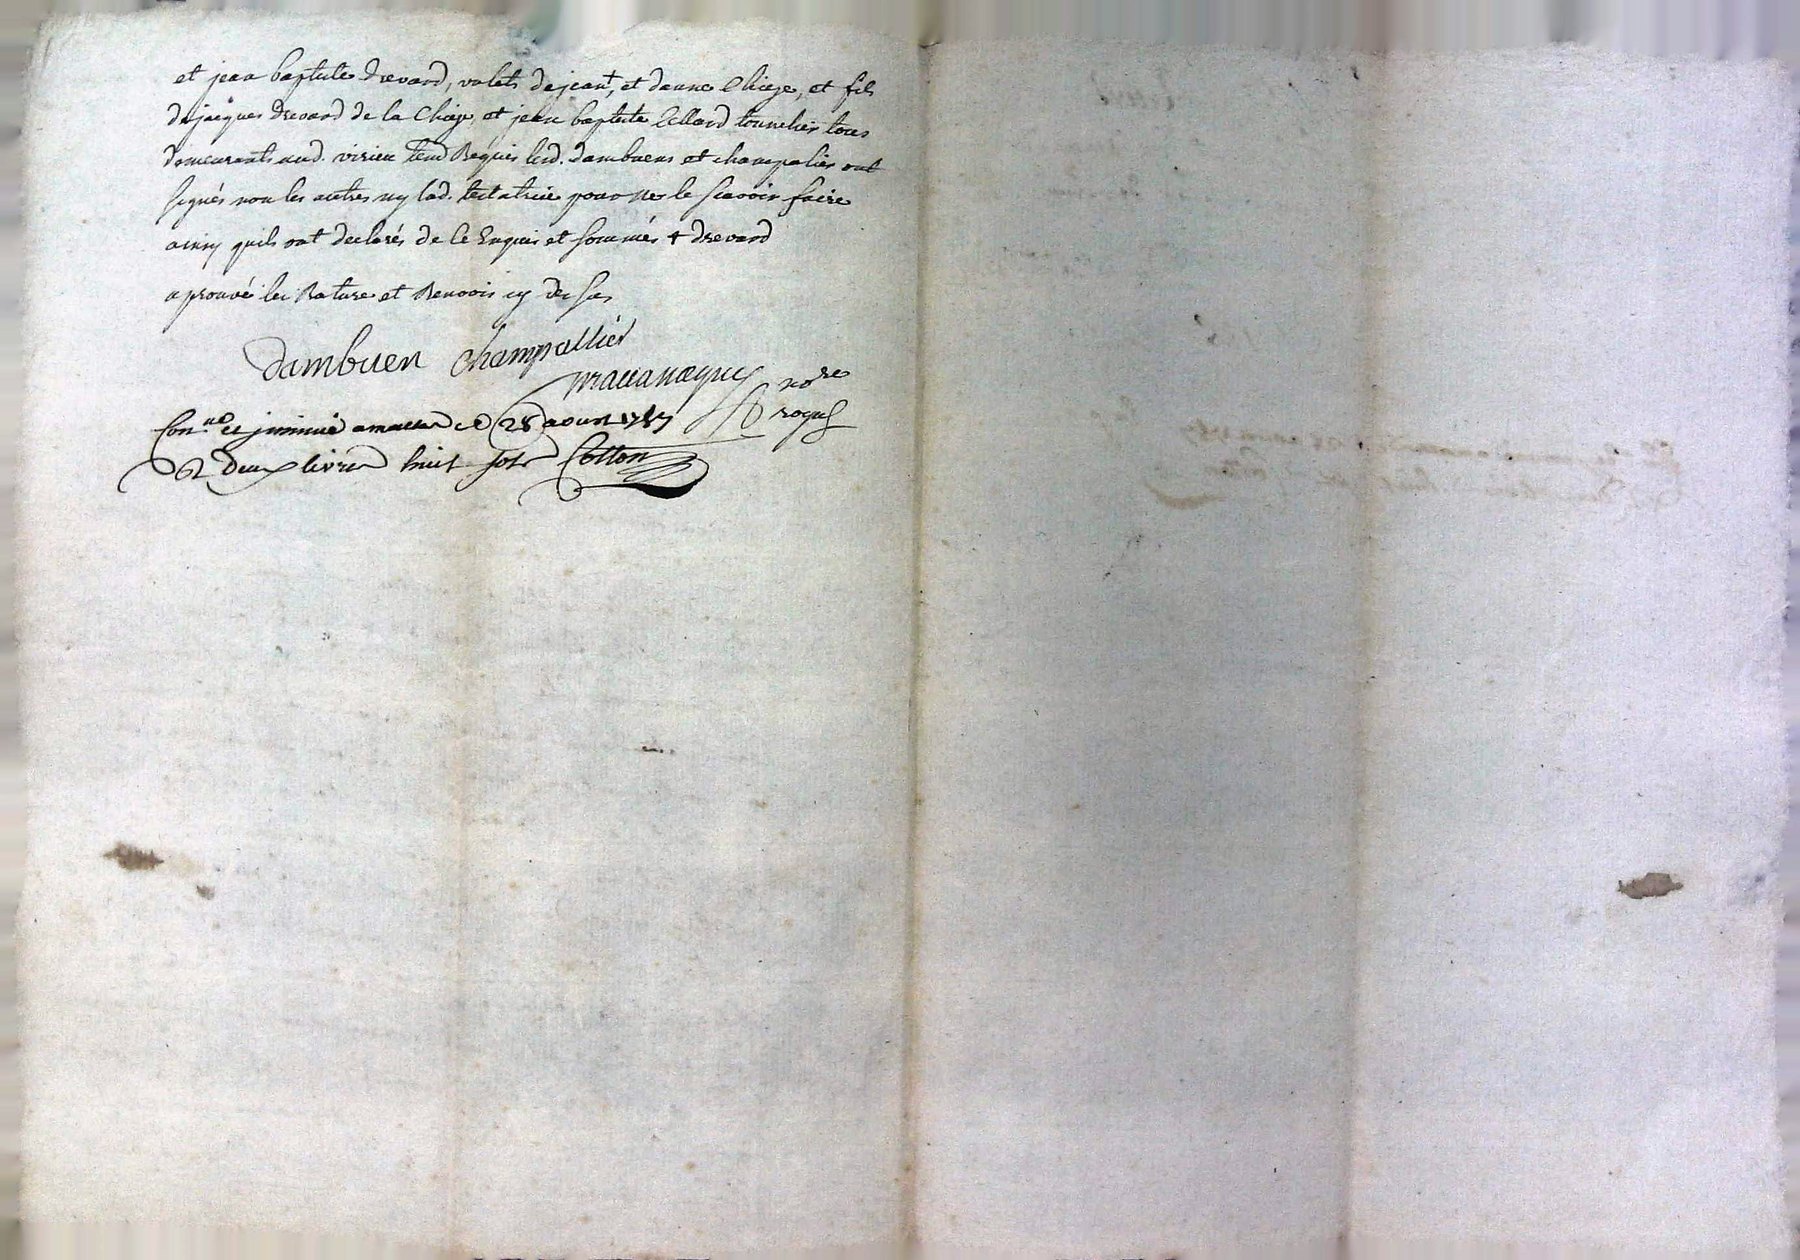 et jean baptiste drevard, valets de jean†, et danne Chieze, et fils
de jacques drevard de la Chieze, et jean baptiste Collard tonnelier tous
demeurants aud. virieu temd Requis lesd. dambuens et champalier ont
signés non les autres ny lad. testatrice pour ne le scavoir faire
ainsy quils ont declarés de ce Enquis et sommés † drevard
aprouvé les Rature et Renvois cy dessus
dambuen Champallier
nore
royal
Con.lle et insinué a 28 aoust 1787
deux livres huit sols Cotton